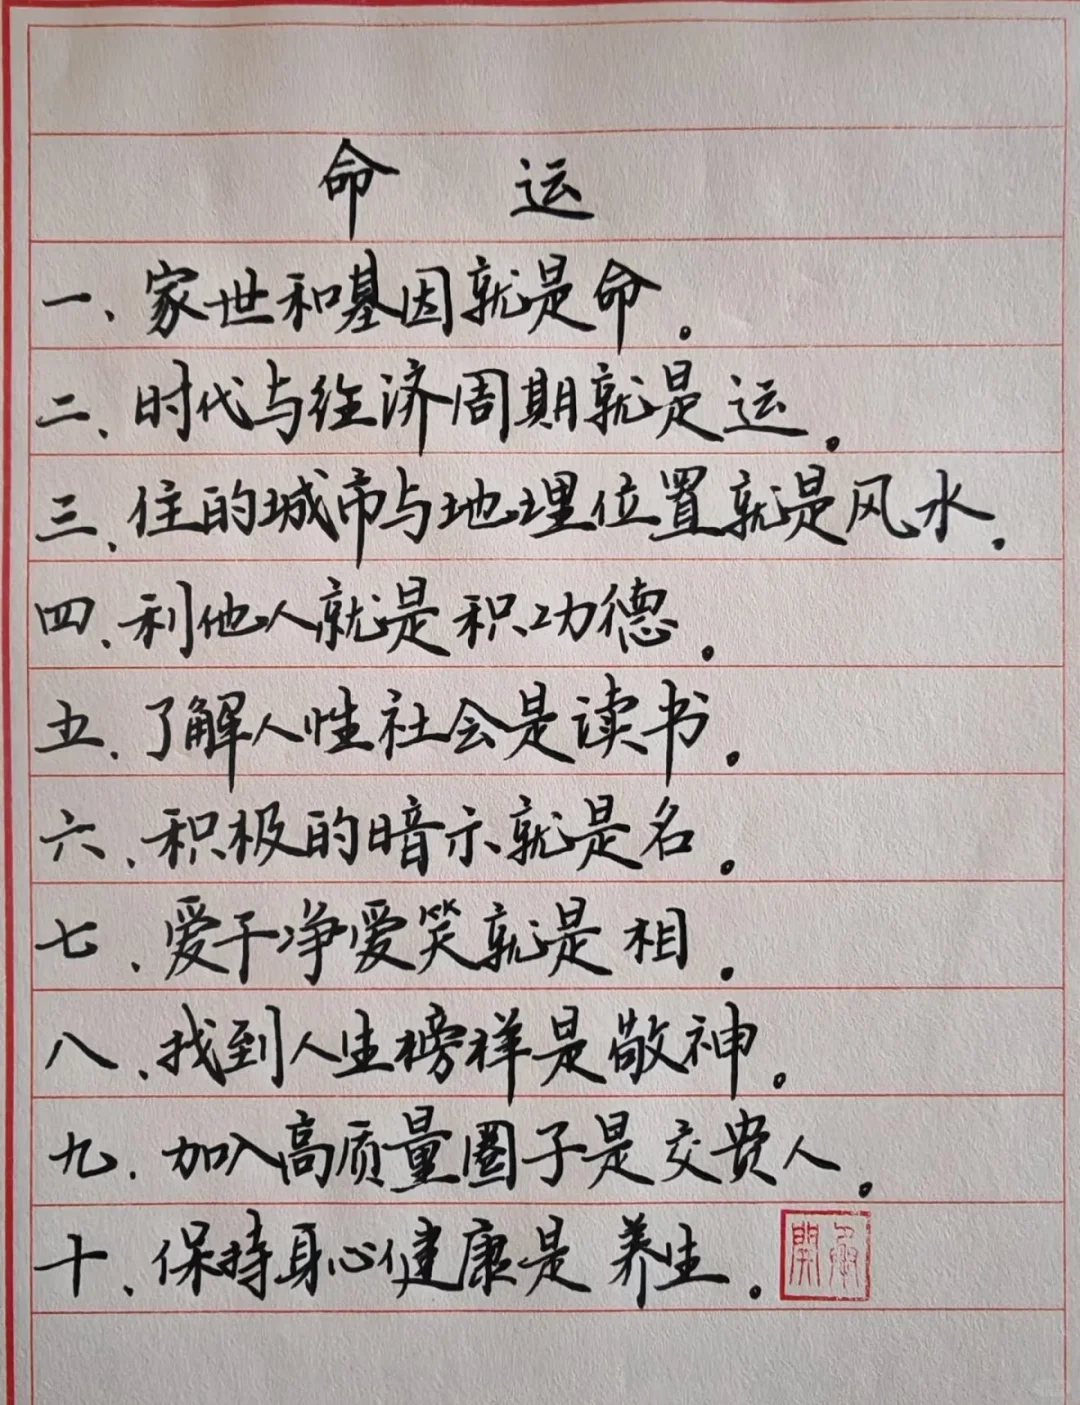 命 运
一、家世和基因就是命.
二、时代与经济周期就是运.
三、住的城市与地理位置就是风水.
四、利他人就是积功德.
五、了解人性社会是读书.
六、积极的暗示就是名.
七、爱干净爱笑就是相.
八、找到人生榜样是敬神.
九、加入高质量圈子是交贵人.
十、保持身心健康是养生.